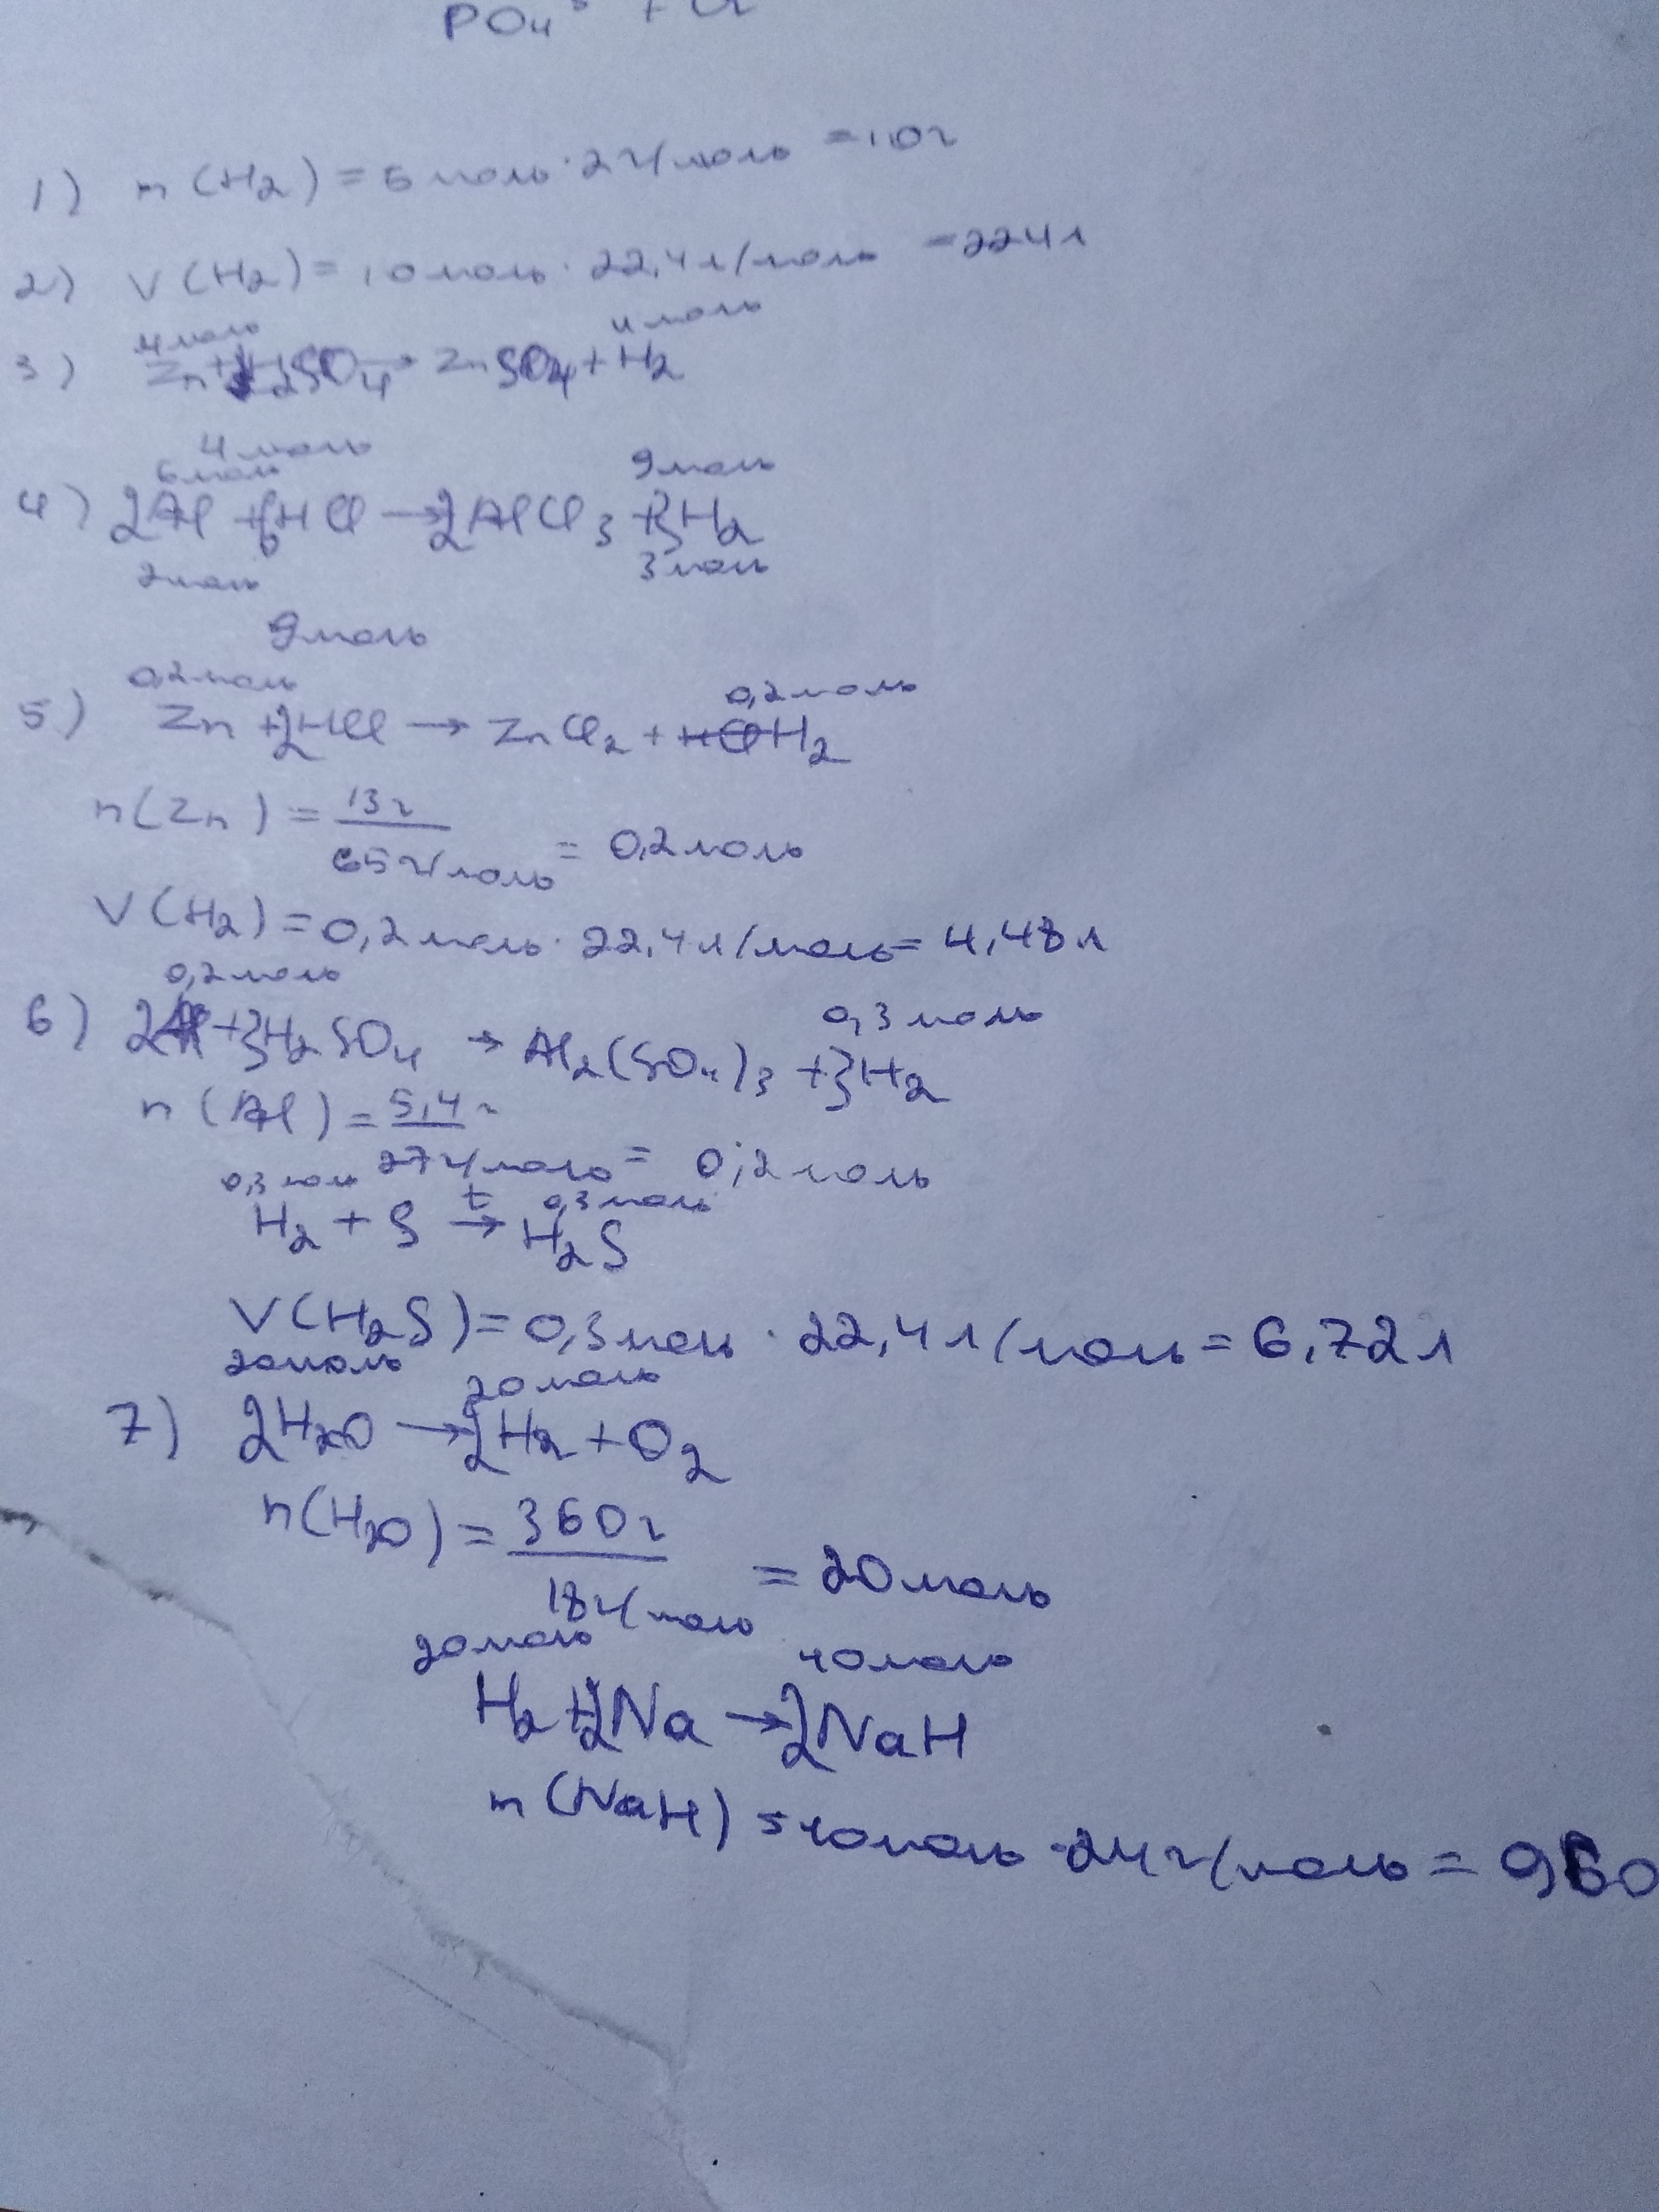 PO₄
1) m(H₂) = 5 моль · 2 г/моль = 10 г
2) V(H₂) = 10 моль · 22,4 л/моль = 224 л
4 моль 4 моль
3) Zn + H₂SO₄ → ZnSO₄ + H₂
4 моль
6 моль 9 моль
4) 2Al + 6HCl → 2AlCl₃ + 3H₂
2 моль 3 моль
9 моль
0,2 моль 0,2 моль
5) Zn + 2HCl → ZnCl₂ + H₂
n(Zn) = 13 г / 65 г/моль = 0,2 моль
V(H₂) = 0,2 моль · 22,4 л/моль = 4,48 л
0,2 моль 0,3 моль
6) 2Al + 3H₂SO₄ → Al₂(SO₄)₃ + 3H₂
n(Al) = 5,4 г / 27 г/моль = 0,2 моль
0,3 моль t 0,3 моль
H₂ + S → H₂S
V(H₂S) = 0,3 моль · 22,4 л/моль = 6,72 л
20 моль 20 моль
7) 2H₂O → 2H₂ + O₂
n(H₂O) = 360 г / 18 г/моль = 20 моль
20 моль 40 моль
H₂ + 2Na → 2NaH
m(NaH) = 40 моль · 24 г/моль = 960